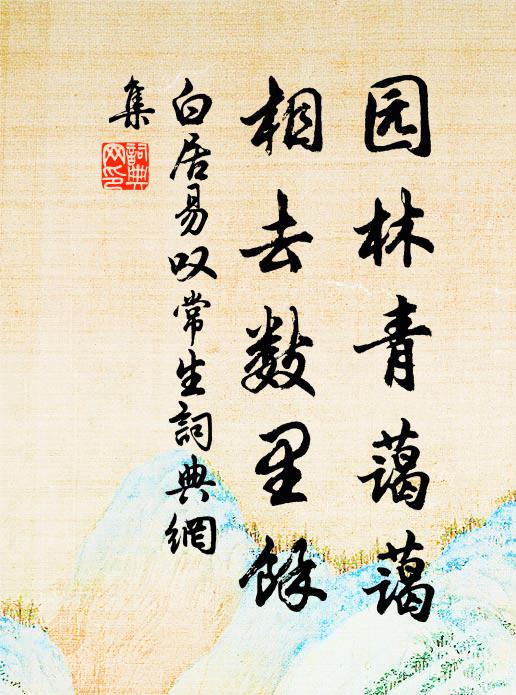 园林青蔼蔼
相去数里馀
白居易叹常生詞典網
集
詞典網印